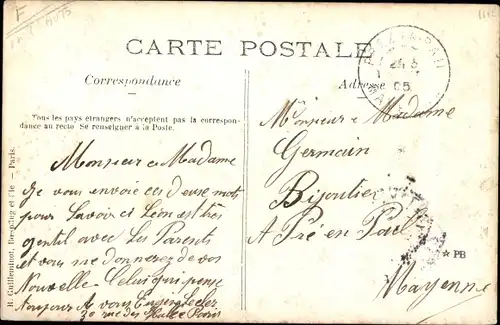 CARTE POSTALE
Correspondance
Adresse
Tous les pays étrangers n'acceptent pas la correspon-
dance au recto Se renseigner à la Poste.
R. Guilleminot, et Cie — Paris.
Monsieur e Madame
Je vous envoie ces deuse mots
pour Savoir ci Léon est très
gentil avec Les Parents
et vous me donnerez de vos
Nouvelle Celui qui pense
Toujours A vous
30 rue des Paris
Monsieur e Madame
Germain
Bijoutier
A Pré en Pail
Mayenne
PRE-EN-PAIL
24 5
05
★ PB